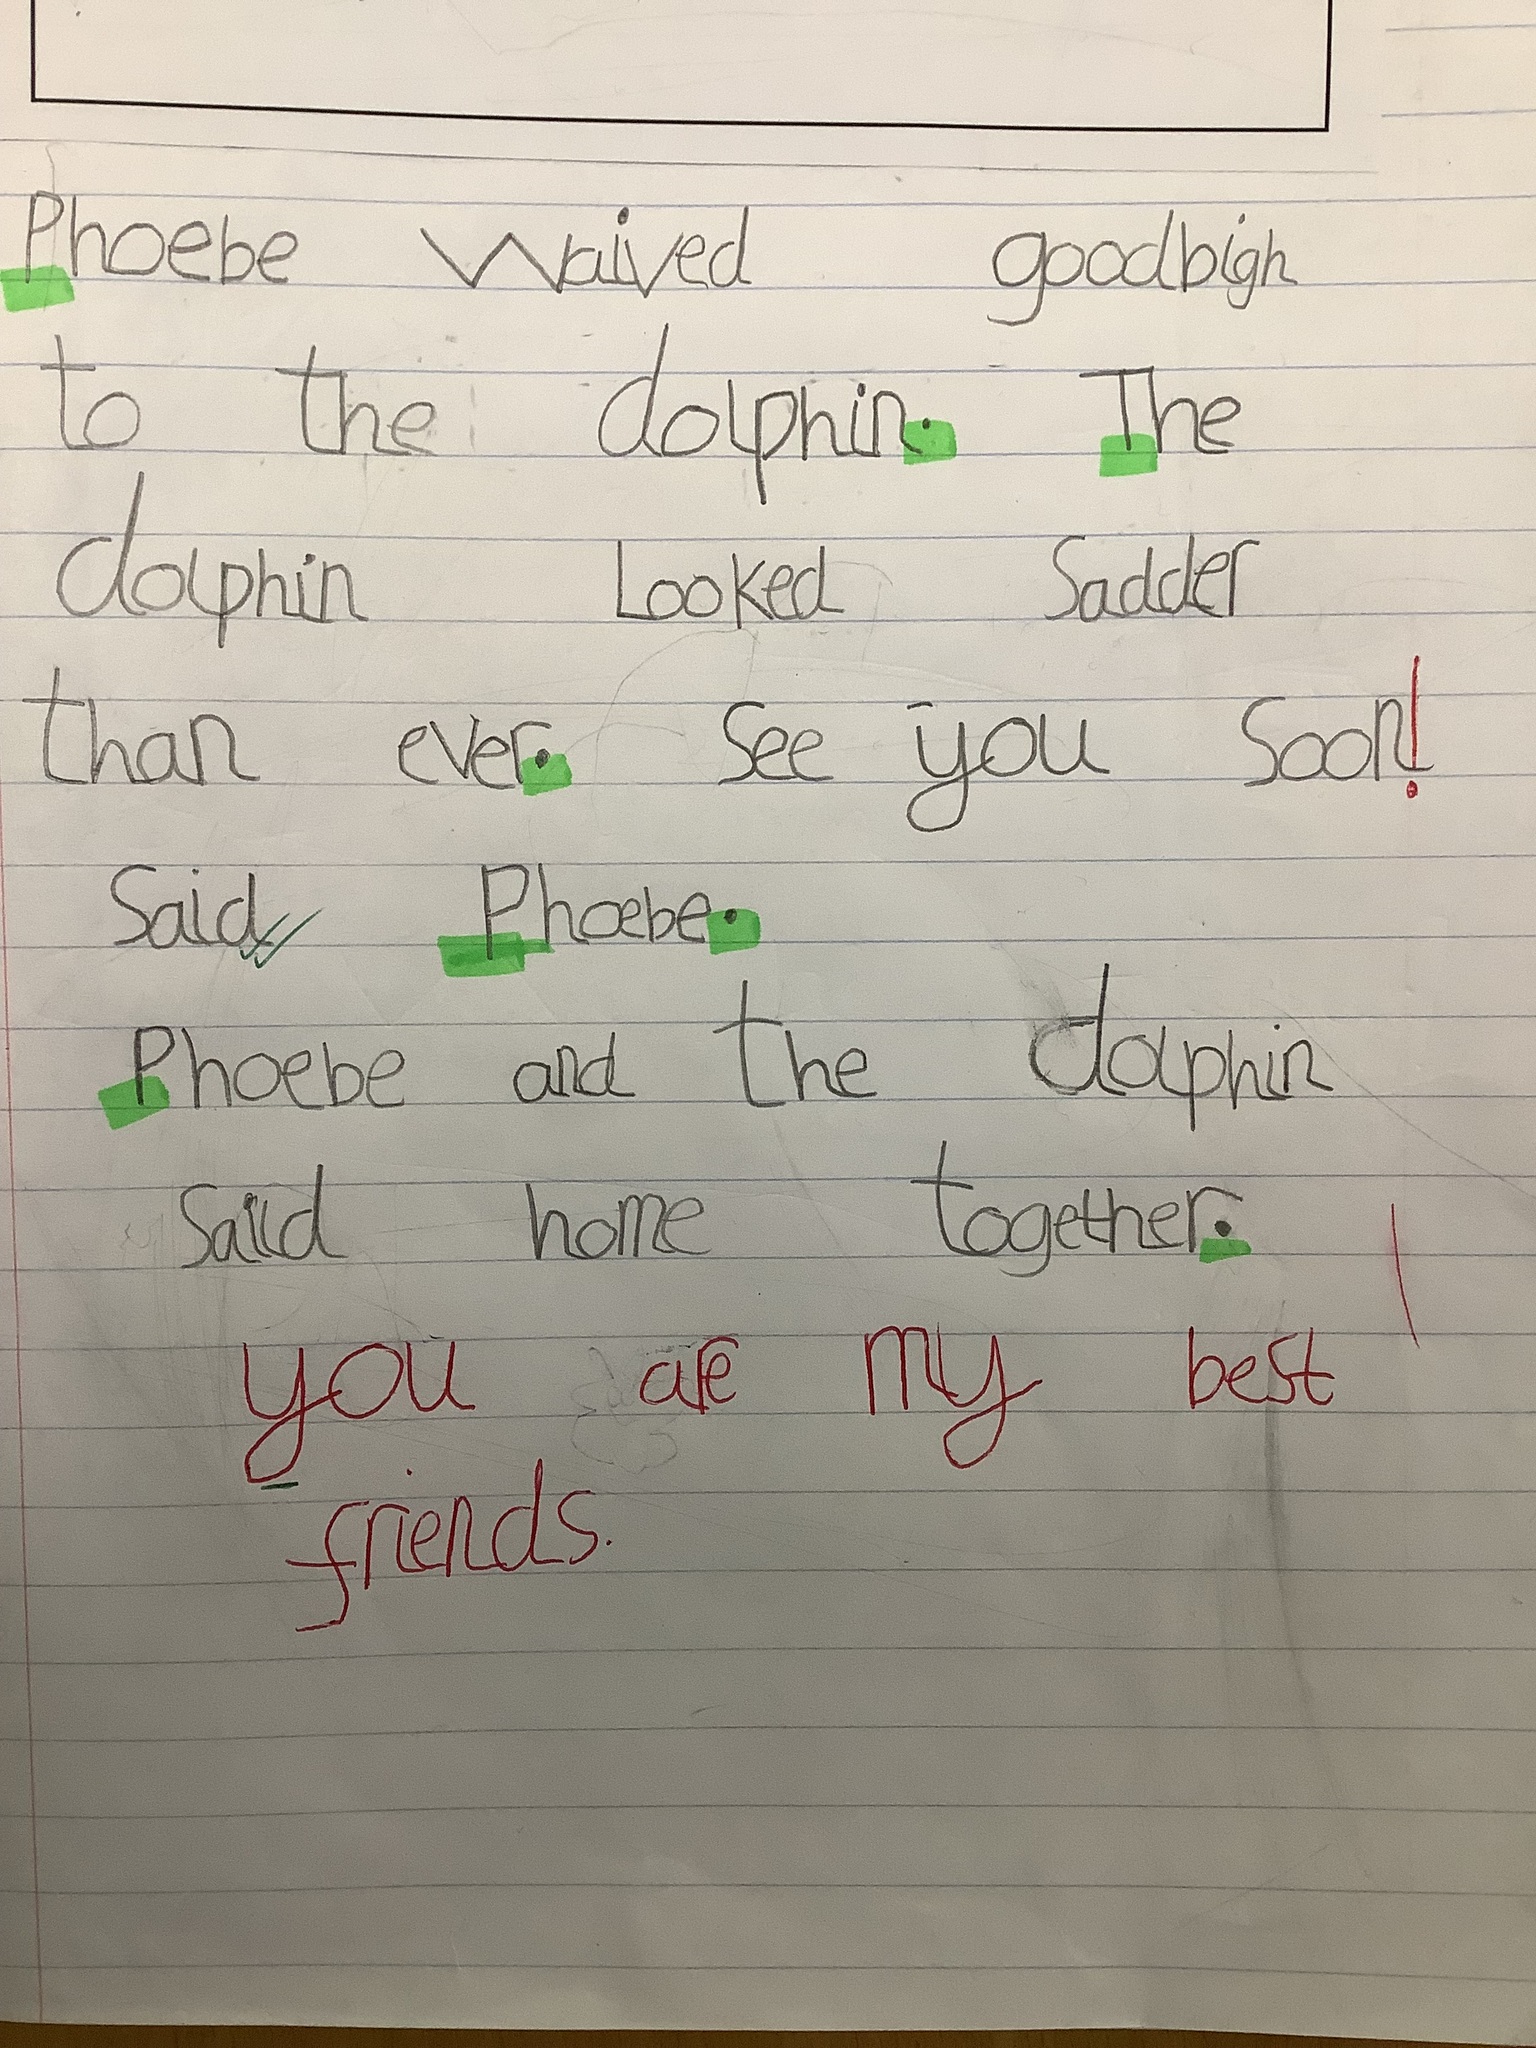 Phoebe waived goodbigh
to the dolphin. The
dolphin Looked Sadder
than ever. See you Soon!
Said Phoebe.
Phoebe and the dolphin
Saild home together.
you are my best
friends.